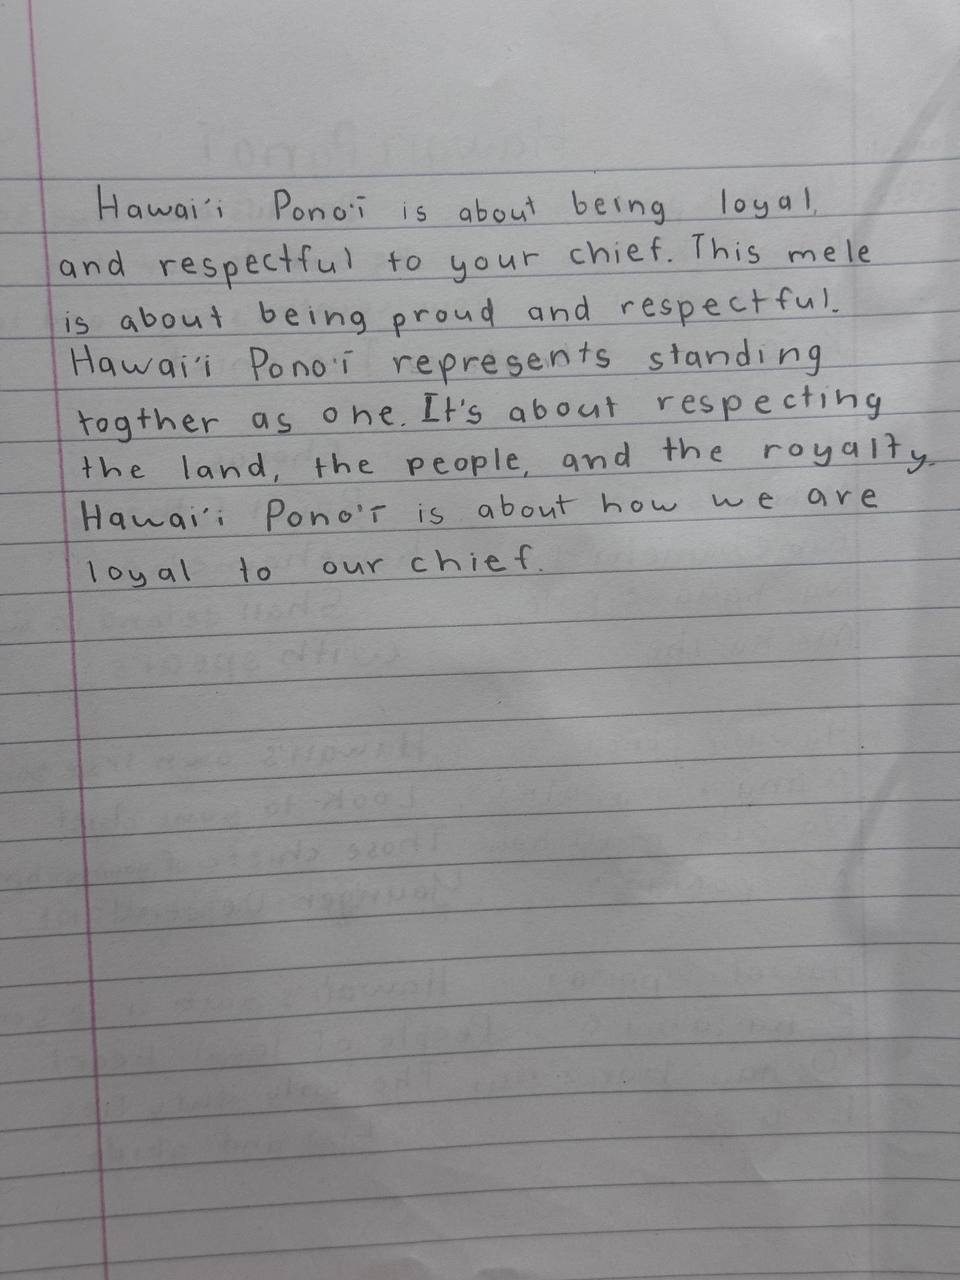 Hawai'i Pono'ī is about being loyal
and respectful to your chief. This mele
is about being proud and respectful.
Hawai'i Pono'ī represents standing
togther as one. It's about respecting
the land, the people, and the royalty.
Hawai'i Pono'ī is about how we are
loyal to our chief.